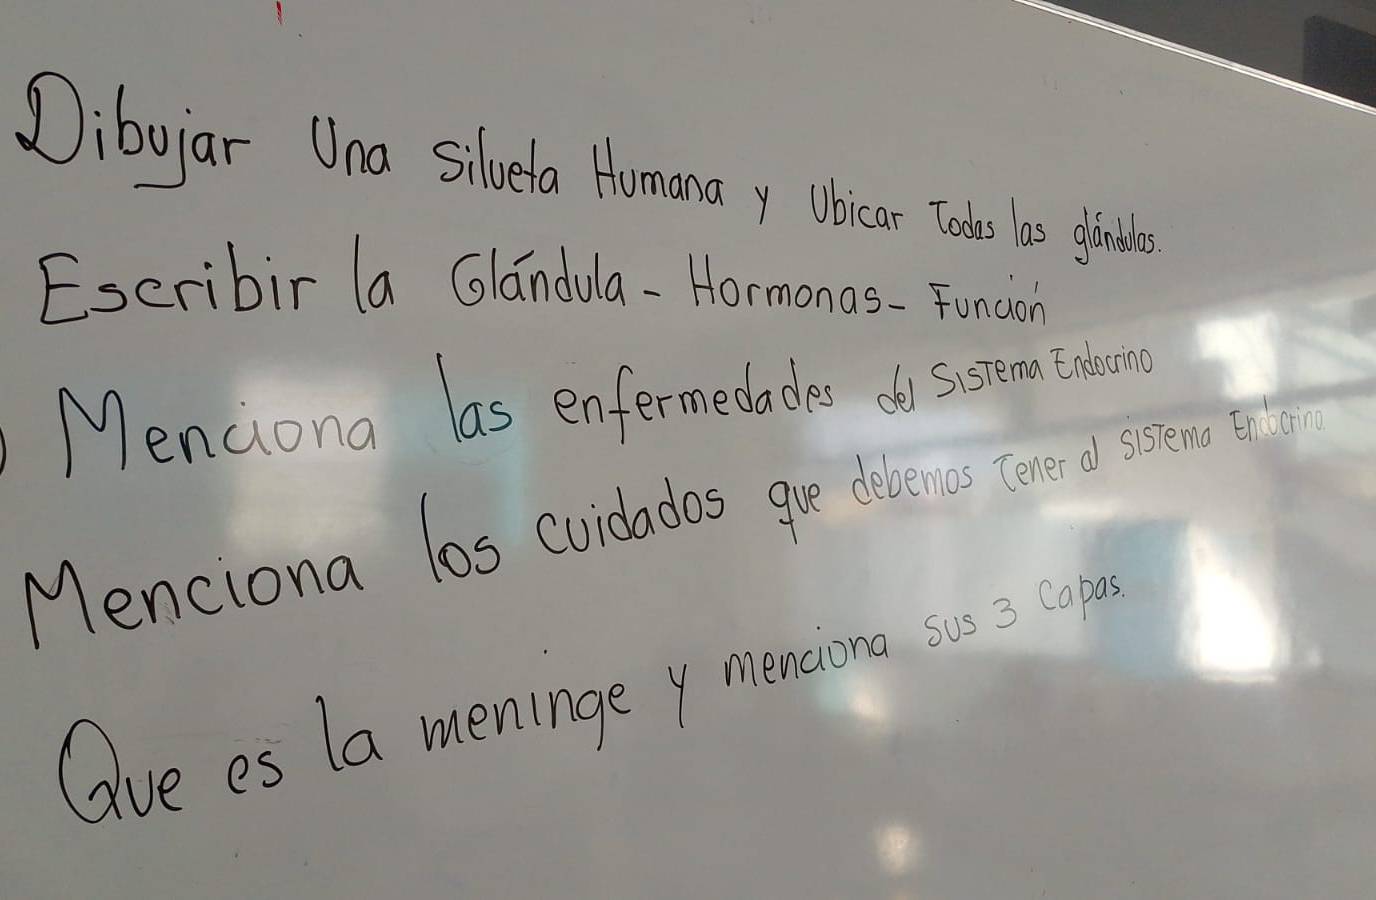 Dibujar Una silueta Humana y Ubicar Todas las glándulas.
Escribir la Glándula - Hormonas - Función
Menciona las enfermedades del Sistema Endocrino
Menciona los cuidados que debemos Tener al sistema Endocrino
Que es la meninge y menciona sus 3 capas.